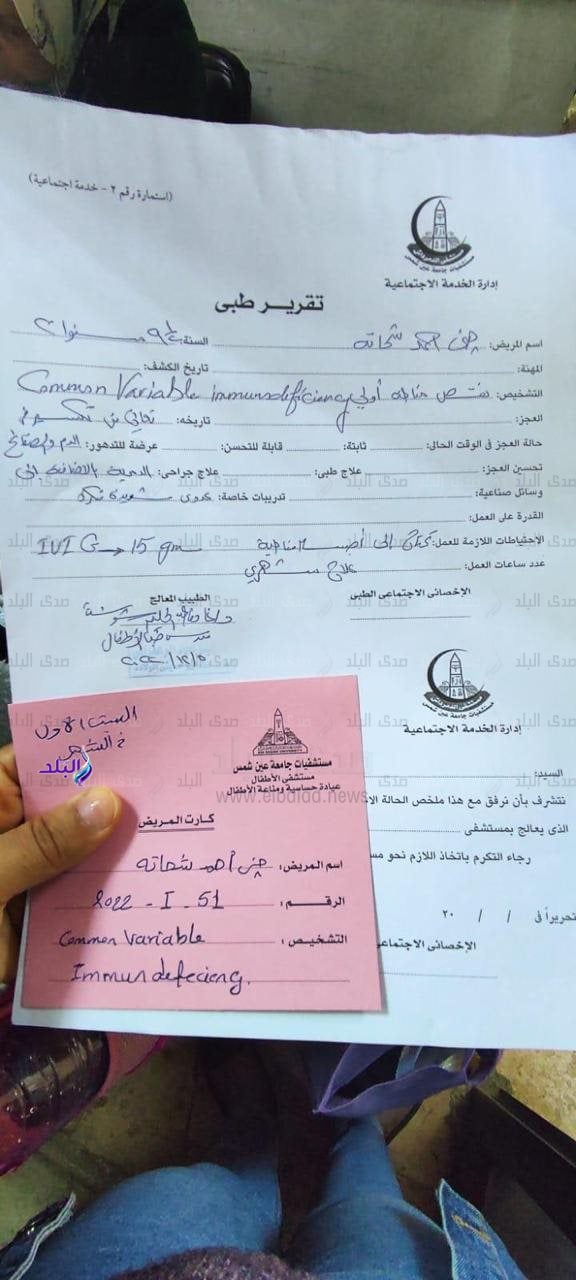 (استمارة رقم ٢ - خدمة اجتماعية)
مستشفيات جامعة عين شمس
إدارة الخدمة الاجتماعية
تقرير طبى
اسم المريض: جنى احمد شحاته السنة: سنوات
المهنة: تاريخ الكشف:
التشخيص: نقص مناعه أولي Common Variable immunodeficiency
العجز: تاريخه: تعاني من
حالة العجز فى الوقت الحالى: ثابتة: قابلة للتحسن: عرضة للتدهور:
تحسين العجز: علاج طبى: علاج جراحى:
وسائل صناعية: تدريبات خاصة: عدوى
القدرة على العمل:
الإحتياطات اللازمة للعمل: تحتاج الى IVIG → 15 gm
عدد ساعات العمل: علاج شهري
الإخصائى الاجتماعى الطبى الطبيب المعالج
طب الأطفال
مستشفيات جامعة عين شمس
إدارة الخدمة الاجتماعية
السيد:
نتشرف بأن نرفق مع هذا ملخص الحالة
الذى يعالج بمستشفى
رجاء التكرم باتخاذ اللازم نحو
تحريراً فى / / ٢٠
الإخصائى الاجتماعى
السبت الاول
البلد
AIN SHAMS UNIVERSITY
مستشفيات جامعة عين شمس
مستشفى الأطفال
عيادة حساسية ومناعة الأطفال
كارت المريض
اسم المريض: جنى أحمد شحاته
الرقم: 2022 - I - 51
التشخيص: Common Variable
Immun defeciency.
صدى البلد
www.elbalad.news